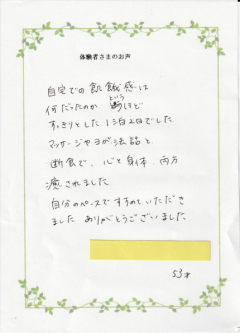 体験者さまのお声
自宅での飢餓感は
何だったのか、というほど
すっきりとした1泊2日でした
マッサージやヨガ法話と
断食で、心と身体 両方
癒されました
自分のペースですすめていただき
ました ありがとうございました
53才